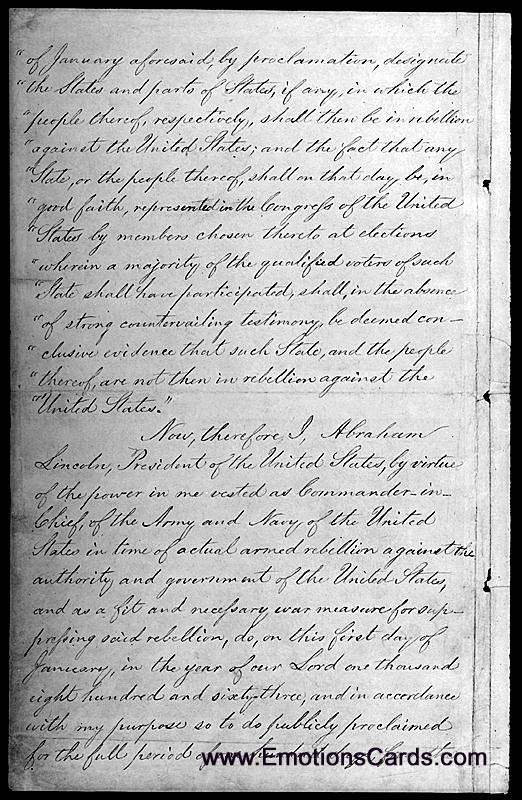 "of January aforesaid, by proclamation, designate
"the States and parts of States, if any, in which the
"people thereof, respectively, shall then be in rebellion
"against the United States; and the fact that any
"State, or the people thereof, shall on that day be, in
"good faith, represented in the Congress of the United
"States by members chosen thereto at elections
"wherein a majority of the qualified voters of such
"State shall have participated, shall, in the absence
"of strong countervailing testimony, be deemed con-
"clusive evidence that such State, and the people
"thereof, are not then in rebellion against the
"United States."
Now, therefore I, Abraham
Lincoln, President of the United States, by virtue
of the power in me vested as Commander-in-
Chief, of the Army and Navy of the United
States in time of actual armed rebellion against the
authority and government of the United States,
and as a fit and necessary war measure for sup-
pressing said rebellion, do, on this first day of
January, in the year of our Lord one thousand
eight hundred and sixty-three, and in accordance
with my purpose so to do publicly proclaimed
for the full period
www.EmotionsCards.com